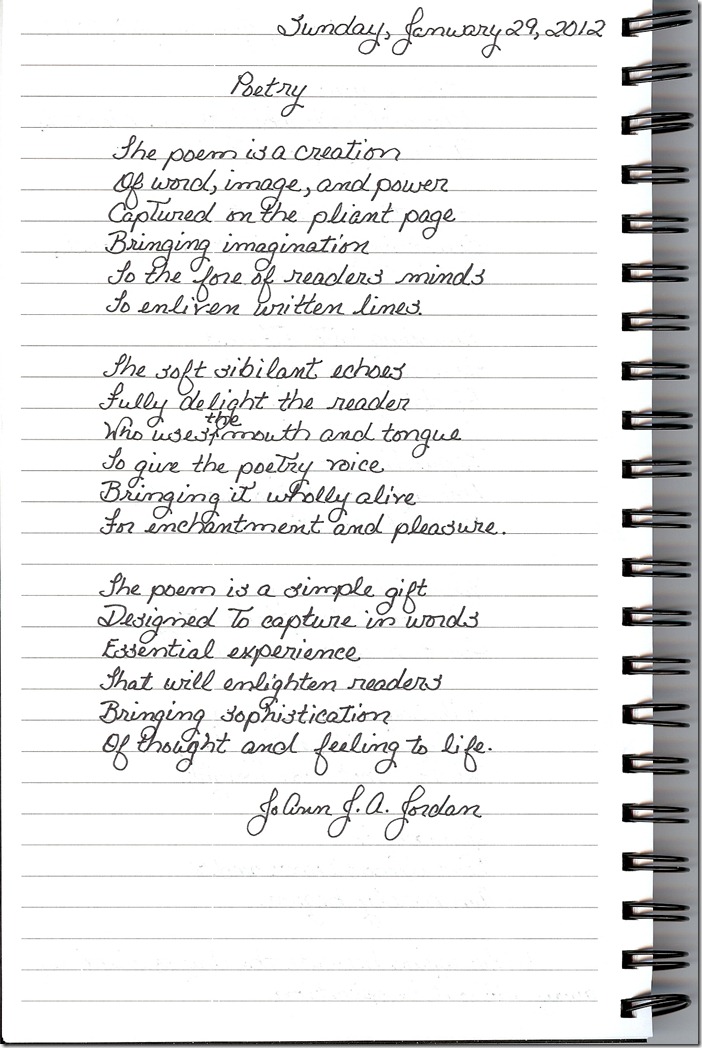 Sunday, January 29, 2012
Poetry
The poem is a creation
Of word, image, and power
Captured on the pliant page
Bringing imagination
To the fore of readers minds
To enliven written lines.
The soft sibilant echoes
Fully delight the reader
Who uses the mouth and tongue
To give the poetry voice
Bringing it wholly alive
For enchantment and pleasure.
The poem is a simple gift
Designed To capture in words
Essential experience
That will enlighten readers
Bringing sophistication
Of thought and feeling to life.
JoAnn J. A. Jordan